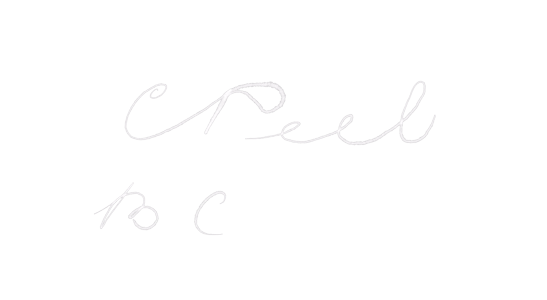 C Peel
B C